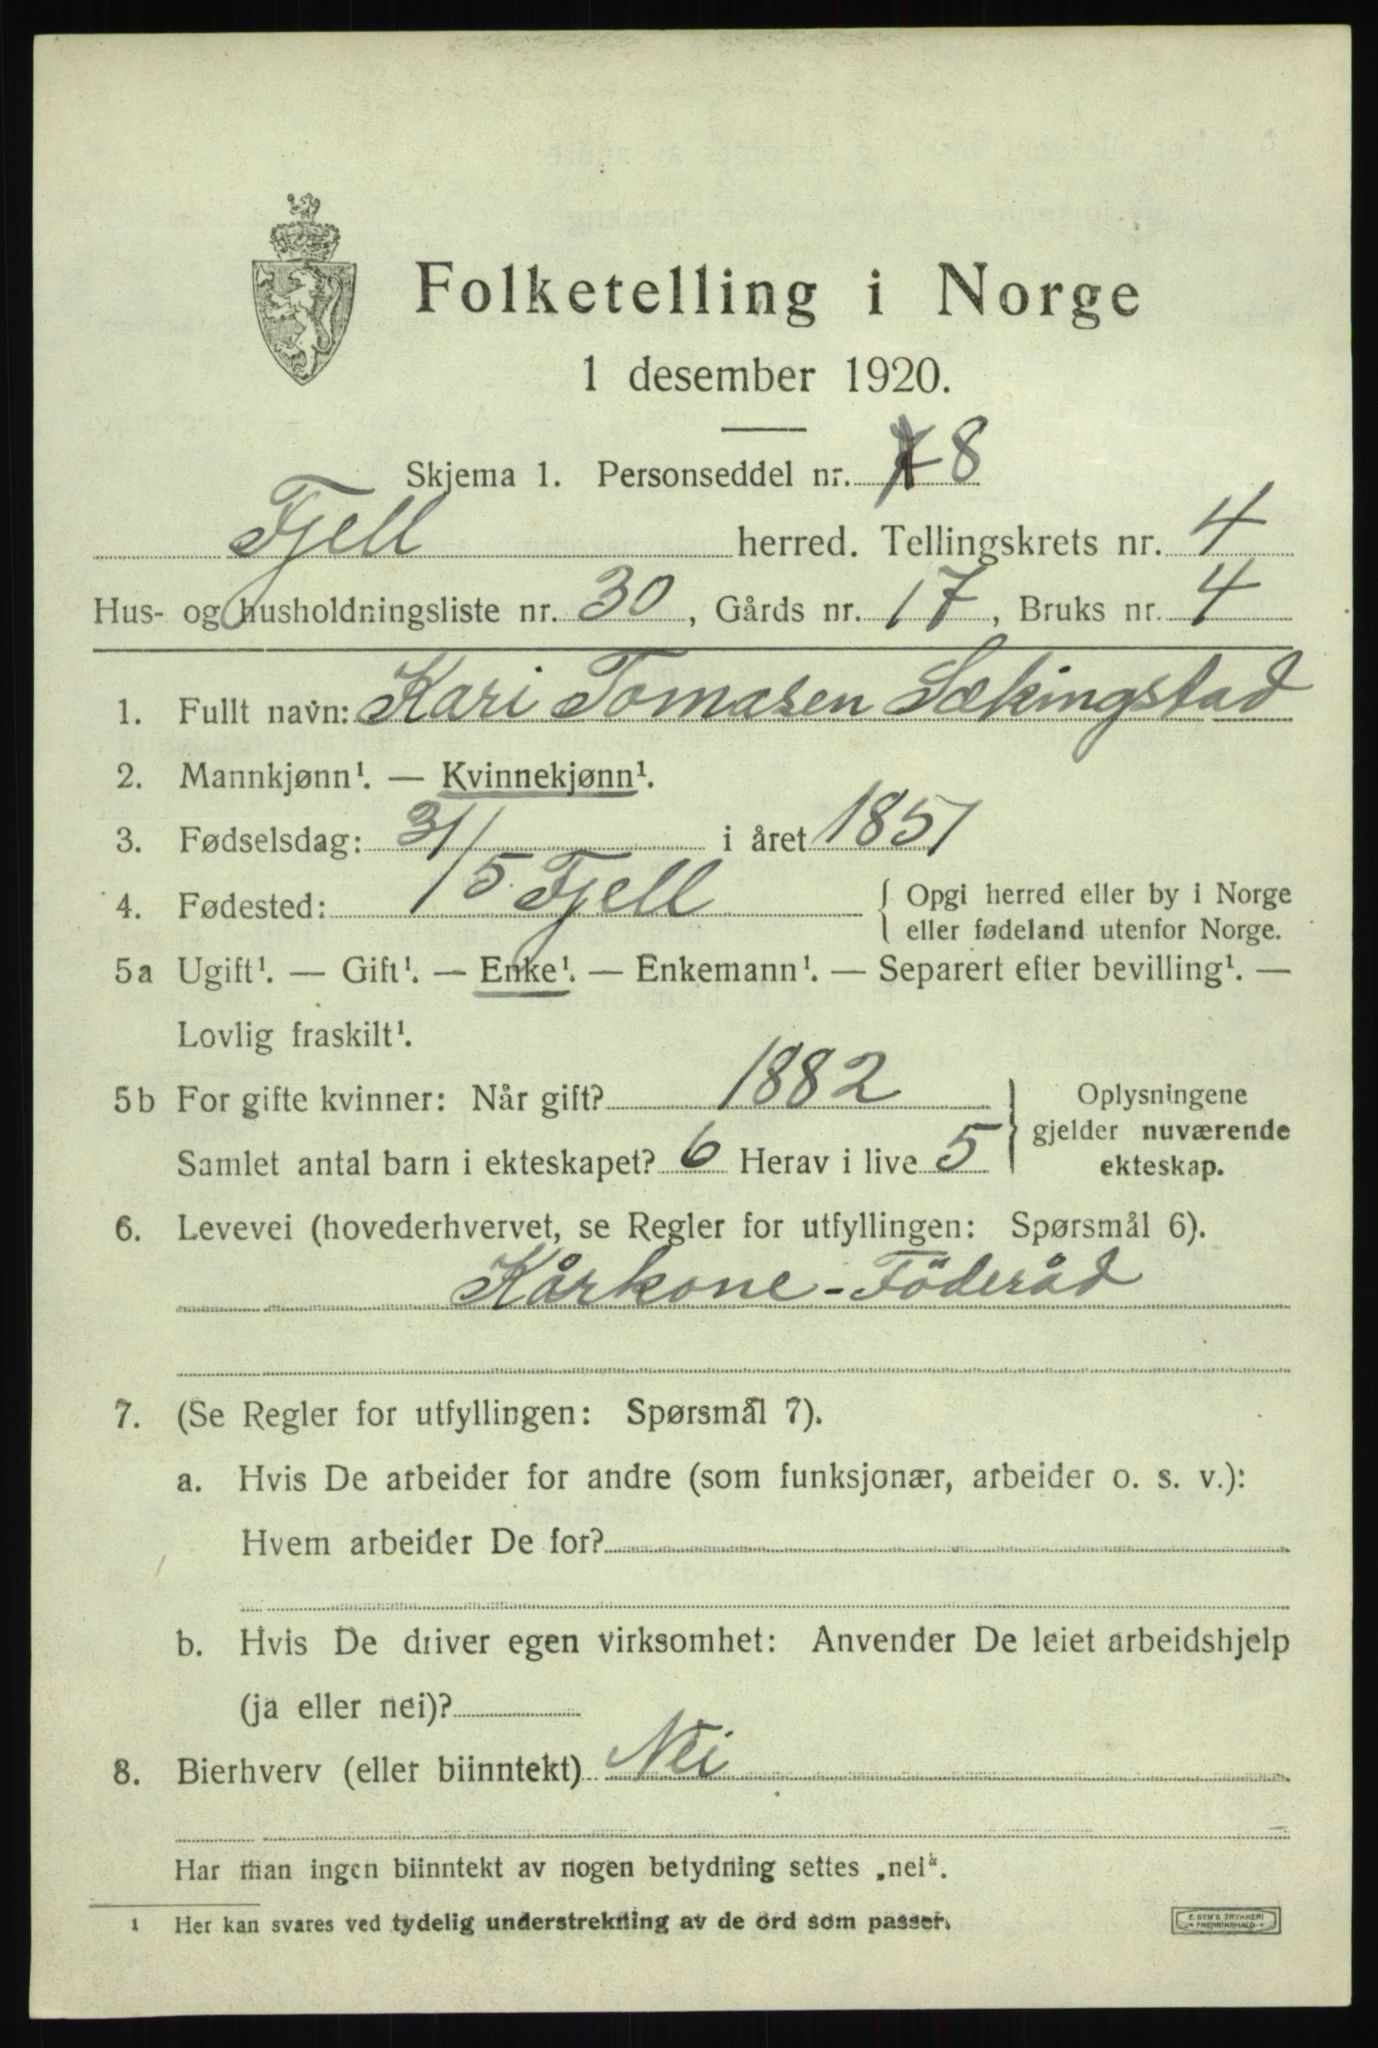 Folketelling i Norge
1 desember 1920.
Skjema 1. Personseddel nr. 8
Fjell herred. Tellingskrets nr. 4
Hus- og husholdningsliste nr. 30, Gårds nr. 17, Bruks nr. 4
1. Fullt navn: Kari Tomasen Sækingstad
2. Mannkjønn¹. — Kvinnekjønn¹.
3. Fødselsdag: 31/5 i året 1851
4. Fødested: Fjell { Opgi herred eller by i Norge
eller fødeland utenfor Norge.
5a Ugift¹. — Gift¹. — Enke¹. — Enkemann¹. — Separert efter bevilling¹. —
Lovlig fraskilt¹.
5b For gifte kvinner: Når gift? 1882
Samlet antal barn i ekteskapet? 6 Herav i live 5
} Oplysningene
gjelder nuværende
ekteskap.
6. Levevei (hovederhvervet, se Regler for utfyllingen: Spørsmål 6).
Kårkone - Föderåd
7. (Se Regler for utfyllingen: Spørsmål 7).
a. Hvis De arbeider for andre (som funksjonær, arbeider o. s. v.):
Hvem arbeider De for?
b. Hvis De driver egen virksomhet: Anvender De leiet arbeidshjelp
(ja eller nei)?
8. Bierhverv (eller biinntekt) Nei
Har man ingen biinntekt av nogen betydning settes „nei“.
¹ Her kan svares ved tydelig understrekning av de ord som passer.
E. SEM'S TRYKKERI
FREDRIKSHALD